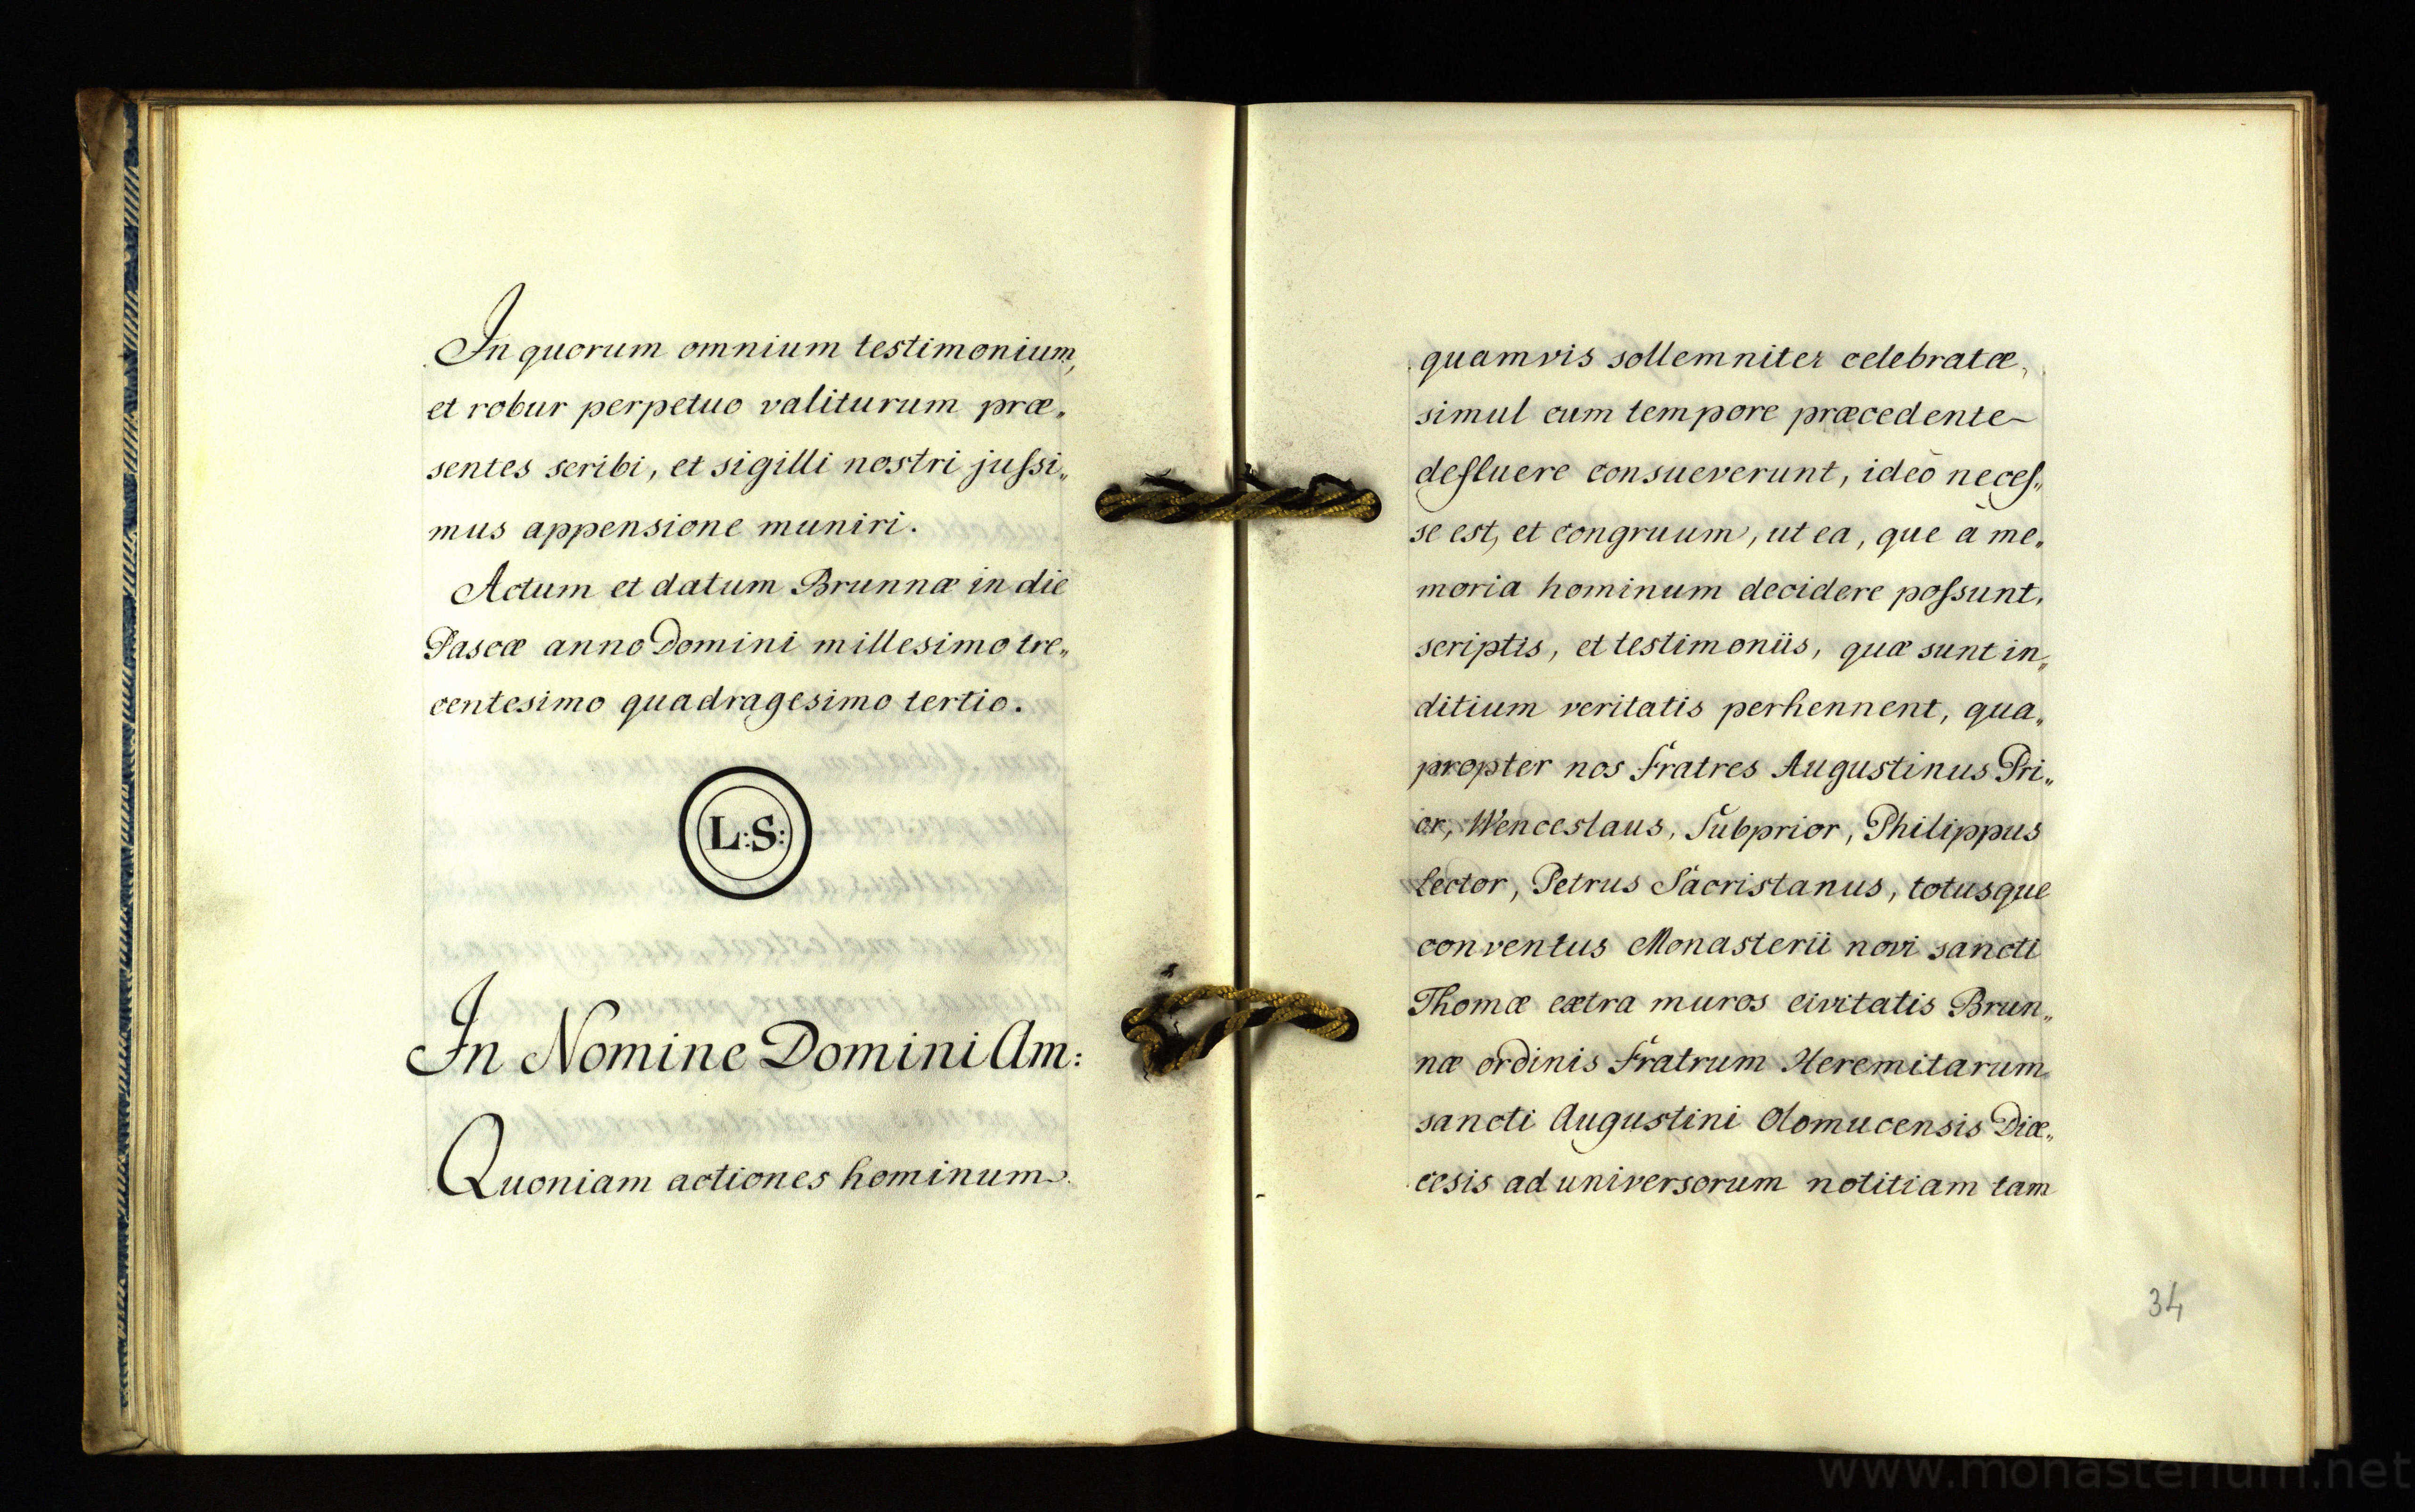 In quorum omnium testimonium,
et robur perpetuo valiturum præ„
sentes scribi, et sigilli nostri juſsi„
mus appensione muniri.
Actum et datum Brunnæ in die
Pascæ anno Domini millesimo tre„
centesimo quadragesimo tertio.
L:S:
In Nomine Domini Am:
Quoniam actiones hominum
quamvis sollemniter celebratæ,
simul cum tempore præcedente
defluere consueverunt, ideò neceſ„
se est, et congruum, ut ea, que à me„
moria hominum decidere poſsunt,
scriptis, et testimoniis, quæ sunt in„
ditium veritatis perhennent, qua„
propter nos Fratres Augustinus Pri„
or, Wenceslaus, Subprior, Philippus
Lector, Petrus Sacristanus, totusque
conventus Monasterii novi sancti
Thomæ extra muros civitatis Brun„
næ ordinis Fratrum Heremitarum
sancti Augustini Olomucensis Diœ„
cesis ad universorum notitiam tam
34
www.monasterium.net